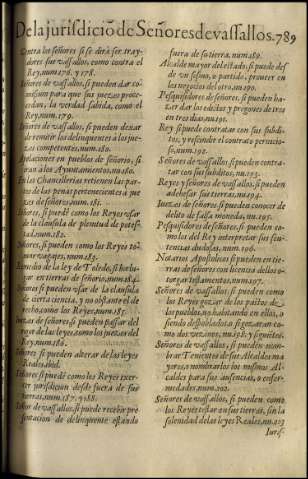 De la jurisdiciõ de Señores de vassallos. 789
Contra los señores si se dirà ser tray-
dores sus vassallos, como contra el
Rey, num. 176. y 178.
Señores de vassallos, si pueden dar co-
mission para que sus juezes proce-
dan, la verdad sabida, como el
Rey, num. 179.
Señores de vassallos, si pueden dexar
de remitir los delinquentes a los jue-
zes competentes, num. 180.
Apelaciones en pueblos de señorio, si
iran a los Ayuntamientos, nu. 180.
En las Chancillerias retienen las par-
tes de las penas pertenecientes a jue-
zes de señores, num. 181.
Señores, si puedẽ como los Reyes vsar
de la clausula de plenitud de potes-
tad, num. 182.
Señores, si pueden como los Reyes to-
mar yantares, num. 183.
Remedio de la ley de Toledo, si ha lu-
gar en tierras de señorio, num. 184.
Señores si pueden vsar de la clausula
de cierta ciencia, y no obstante el de-
recho, como los Reyes, num. 185.
Juezes de señores si pueden passar del
rigor de las leyes, como los juezes del
Rey, num. 186.
Señores si pueden alterar de las leyes
Reales, ibid.
Señores si puedẽ como los Reyes exer-
cer jurisdicion desde fuera de sus
tierras, num. 187. y 188.
Señor de vassallos, si puede recebir pre-
sentacion de delinquente estando
fuera de su tierra, num. 189.
Alcalde mayor del estado, si puede des-
de un sesmo, o partido, proueer en
los negocios del otro, nu. 190.
Pesquisidores de señores, si pueden ha-
zer dar los editos y pregones de tres
en tres dias, nu. 191.
Rey si puede contratar con sus subdi-
tos, y rescindir el contrato perniciо-
so, num. 192.
Señores de vassallos, si pueden contra-
tar con sus subditos, nu. 193.
Reyes y señores de vassallos, si pueden
adehesar sus tierras, nu. 194.
Juezes de señores, si pueden conocer de
delito de falsa moneda, nu. 195.
Pesquisidores de señores, si pueden co-
mo los del Rey interpretar sus sen-
tencias dudosas, num. 196.
Notarios Apostolicos si pueden en tie-
rras de señores con licencia dellos o-
torgar testamentos, num. 197.
Señores de vassallos, si pueden como
los Reyes gozar de los pastos de los
pueblos, no habitando en ellos, o
siendo despoblados si gozaran co-
mo dos vezinos, nu. 198. y siguiẽtes.
Señores de vassallos, si pueden nom-
brar Tenientes de sus Alcaldes ma-
yores, o nombrarlos los mismos Al-
caldes para sus ausencias, o enfer-
medades, num. 202.
Señores de vassallos, si pueden como
los Reyes testar en sus tierras, sin la
solenidad de las leyes Reales, nu. 203
Juris-